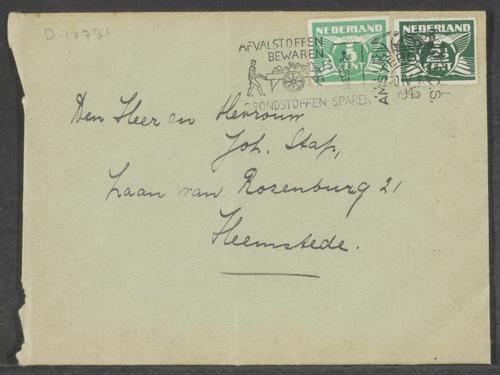 AFVALSTOFFEN
BEWAREN
GRONDSTOFFEN SPAREN
NEDERLAND
5
CENT
NEDERLAND
2½
CENT
1943
Den Heer en Mevrouw
Joh. Stap,
Laan van Rozenburg 21
Heemstede.